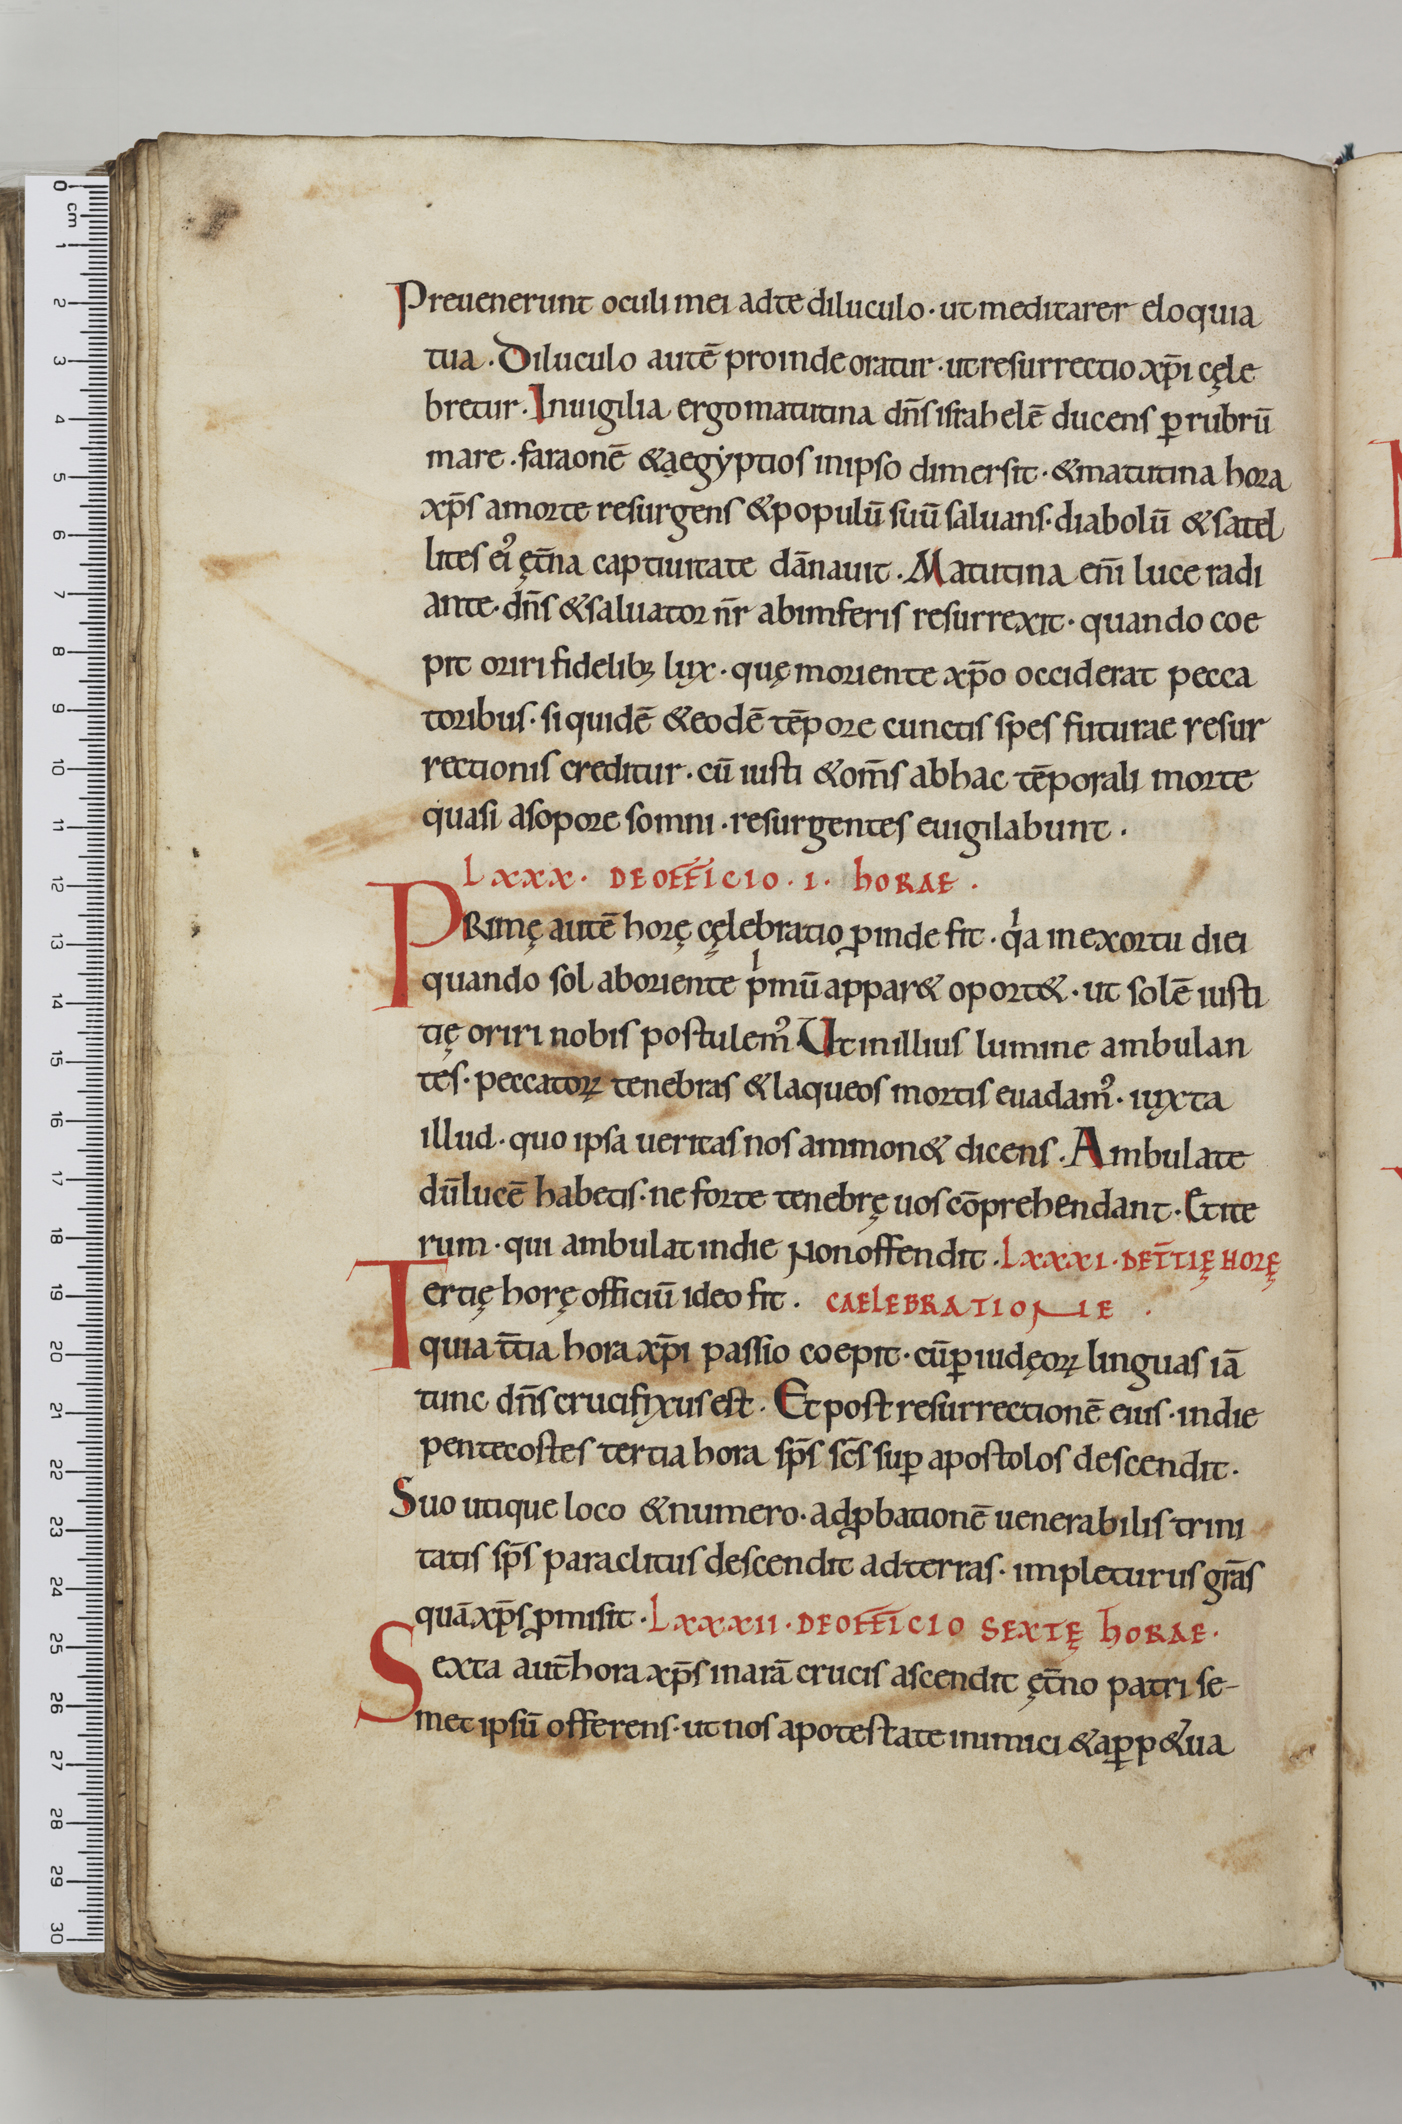 Preuenerunt oculi mei ad te diluculo · ut meditarer eloquia
tua · Diluculo autē proinde oratur · ut resurrectio xp̄i cęle
bretur · In uigilia ergo matutina dn̄s israhelē ducens ꝑ rubrū
mare · faraonē & aegẏptios in ipso dimersit · & matutina hora
xp̄s a morte resurgens & populū suū saluans · diabolū & satel
lites ei᾽ ęt̄na captiuitate dānauit · Matutina eni̅ luce radi
ante · dn̄s & saluator nr̄ ab imferis resurrexit · quando coe
pit oriri fidelibꝫ lux · quę moriente xp̄o occiderat pecca
toribus · siquidē & eodē tēpore cunctis spes futurae resur
rectionis creditur · cū iusti & om̄s ab hac tēporali morte
quasi a sopore somni · resurgentes euigilabunt ·
Lxxx · DE OFFICIO · I · hORAE ·
PRimę autē horę cęlebratio ꝓinde fit · qͥa in exortu diei
quando sol ab oriente pͥmū appar& oport& · ut solē iusti
tię oriri nobis postulem᾽ · Ut in illius lumine ambulan
tes · peccatoꝝ tenebras & laqueos mortis euadam᾽ · iuxta
illud · quo ipsa ueritas nos ammon& dicens · Ambulate
dū lucē habetis · ne forte tenebrę uos cōprehendant · Et ite
rum · qui ambulat in die non offendit · Lxxxi · DE TT̄IĘ HORĘ
Tertię horę officiū ideo fit · CAELEBRATIONE ·
quia tt̄ia hora xp̄i passio coepit · cū ꝑ iudęoꝝ linguas iā
tunc dn̄s crucifixus est · Et post resurrectionē eius · in die
pentecostes tertia hora sp̄s sc̄s suꝑ apostolos descendit ·
Suo utique loco & numero · ad ꝓbationē uenerabilis trini
tatis sp̄s paraclitus descendit ad terras · impleturus gr̄as
quā xp̄s ꝓmisit · Lxxxii · DE OFFICIO SEXTĘ hORAE ·
Sexta aut̄ hora xp̄s in arā crucis ascendit ęt̄no patri se-
met ipsū offerens · ut nos a potestate inimici & a ꝑp&ua